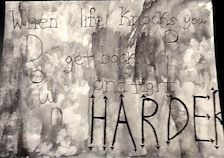 When life Knocks you
Down
get back up
and fight
HARDER